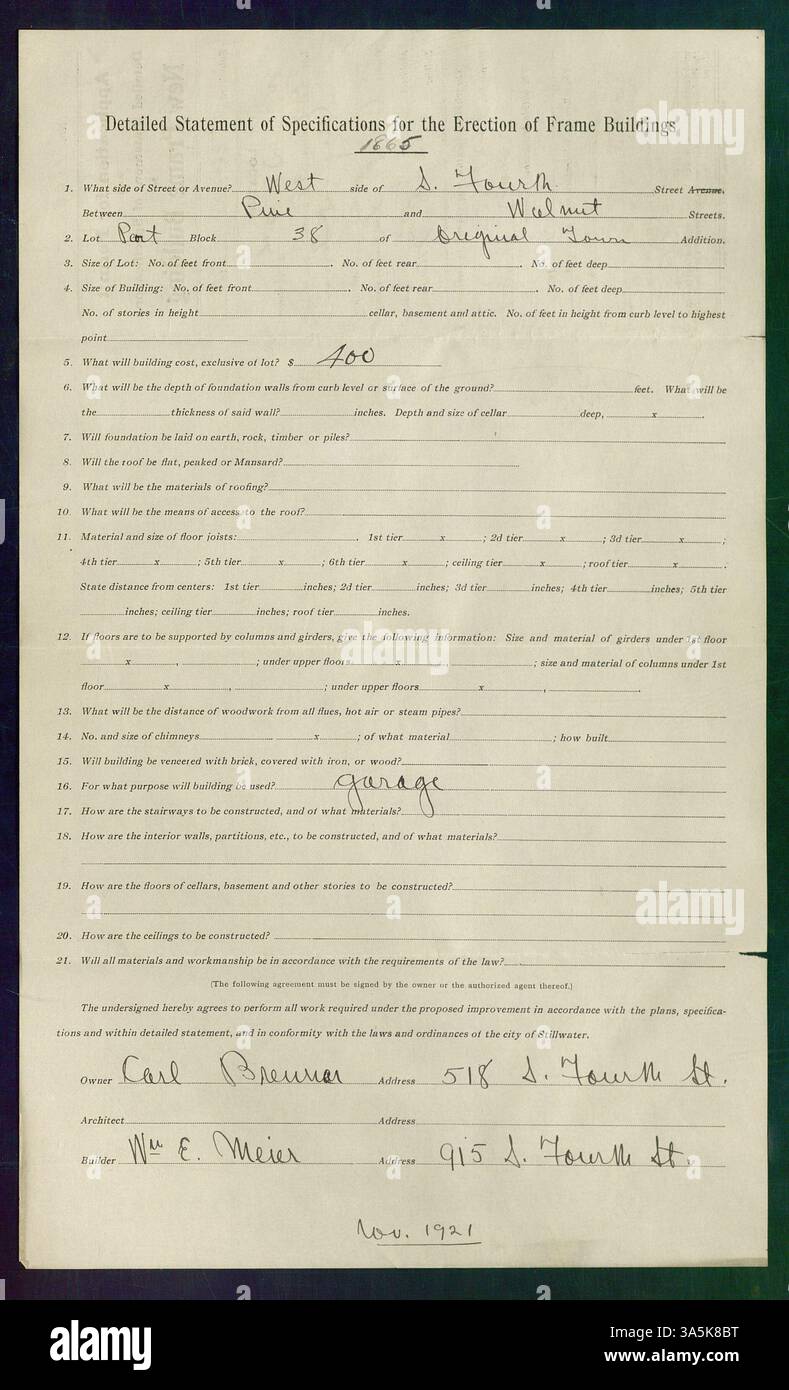 Detailed Statement of Specifications for the Erection of Frame Buildings
1865
1. What side of Street or Avenue? West side of S. Fourth Street Avenue.
Between Pine and Walnut Streets.
2. Lot Part Block 38 of Original Town Addition.
3. Size of Lot: No. of feet front. No. of feet rear. No. of feet deep
4. Size of Building: No. of feet front. No. of feet rear. No. of feet deep
No. of stories in height cellar, basement and attic. No. of feet in height from curb level to highest
point
5. What will building cost, exclusive of lot? $ 400
6. What will be the depth of foundation walls from curb level or surface of the ground? feet. What will be
the thickness of said wall? inches. Depth and size of cellar deep, x .
7. Will foundation be laid on earth, rock, timber or piles?
8. Will the roof be flat, peaked or Mansard?
9. What will be the materials of roofing?
10. What will be the means of access to the roof?
11. Material and size of floor joists: . 1st tier x ; 2d tier x ; 3d tier x ;
4th tier x ; 5th tier x ; 6th tier x ; ceiling tier x ; roof tier x .
State distance from centers: 1st tier inches; 2d tier inches; 3d tier inches; 4th tier inches; 5th tier
inches; ceiling tier inches; roof tier inches.
12. If floors are to be supported by columns and girders, give the following information: Size and material of girders under 1st floor
x , ; under upper floors x , ; size and material of columns under 1st
floor x , ; under upper floors x , .
13. What will be the distance of woodwork from all flues, hot air or steam pipes?
14. No. and size of chimneys x ; of what material ; how built
15. Will building be veneered with brick, covered with iron, or wood?
16. For what purpose will building be used? garage
17. How are the stairways to be constructed, and of what materials?
18. How are the interior walls, partitions, etc., to be constructed, and of what materials?
19. How are the floors of cellars, basement and other stories to be constructed?
20. How are the ceilings to be constructed?
21. Will all materials and workmanship be in accordance with the requirements of the law?
(The following agreement must be signed by the owner or the authorized agent thereof.)
The undersigned hereby agrees to perform all work required under the proposed improvement in accordance with the plans, specifica-
tions and within detailed statement, and in conformity with the laws and ordinances of the city of Stillwater.
Owner Carl Brenner Address 518 S. Fourth St.
Architect Address
Builder Wm E. Meier Address 915 S. Fourth St.
Nov. 1921
alamy
Image ID: 3A5K8BT
www.alamy.com